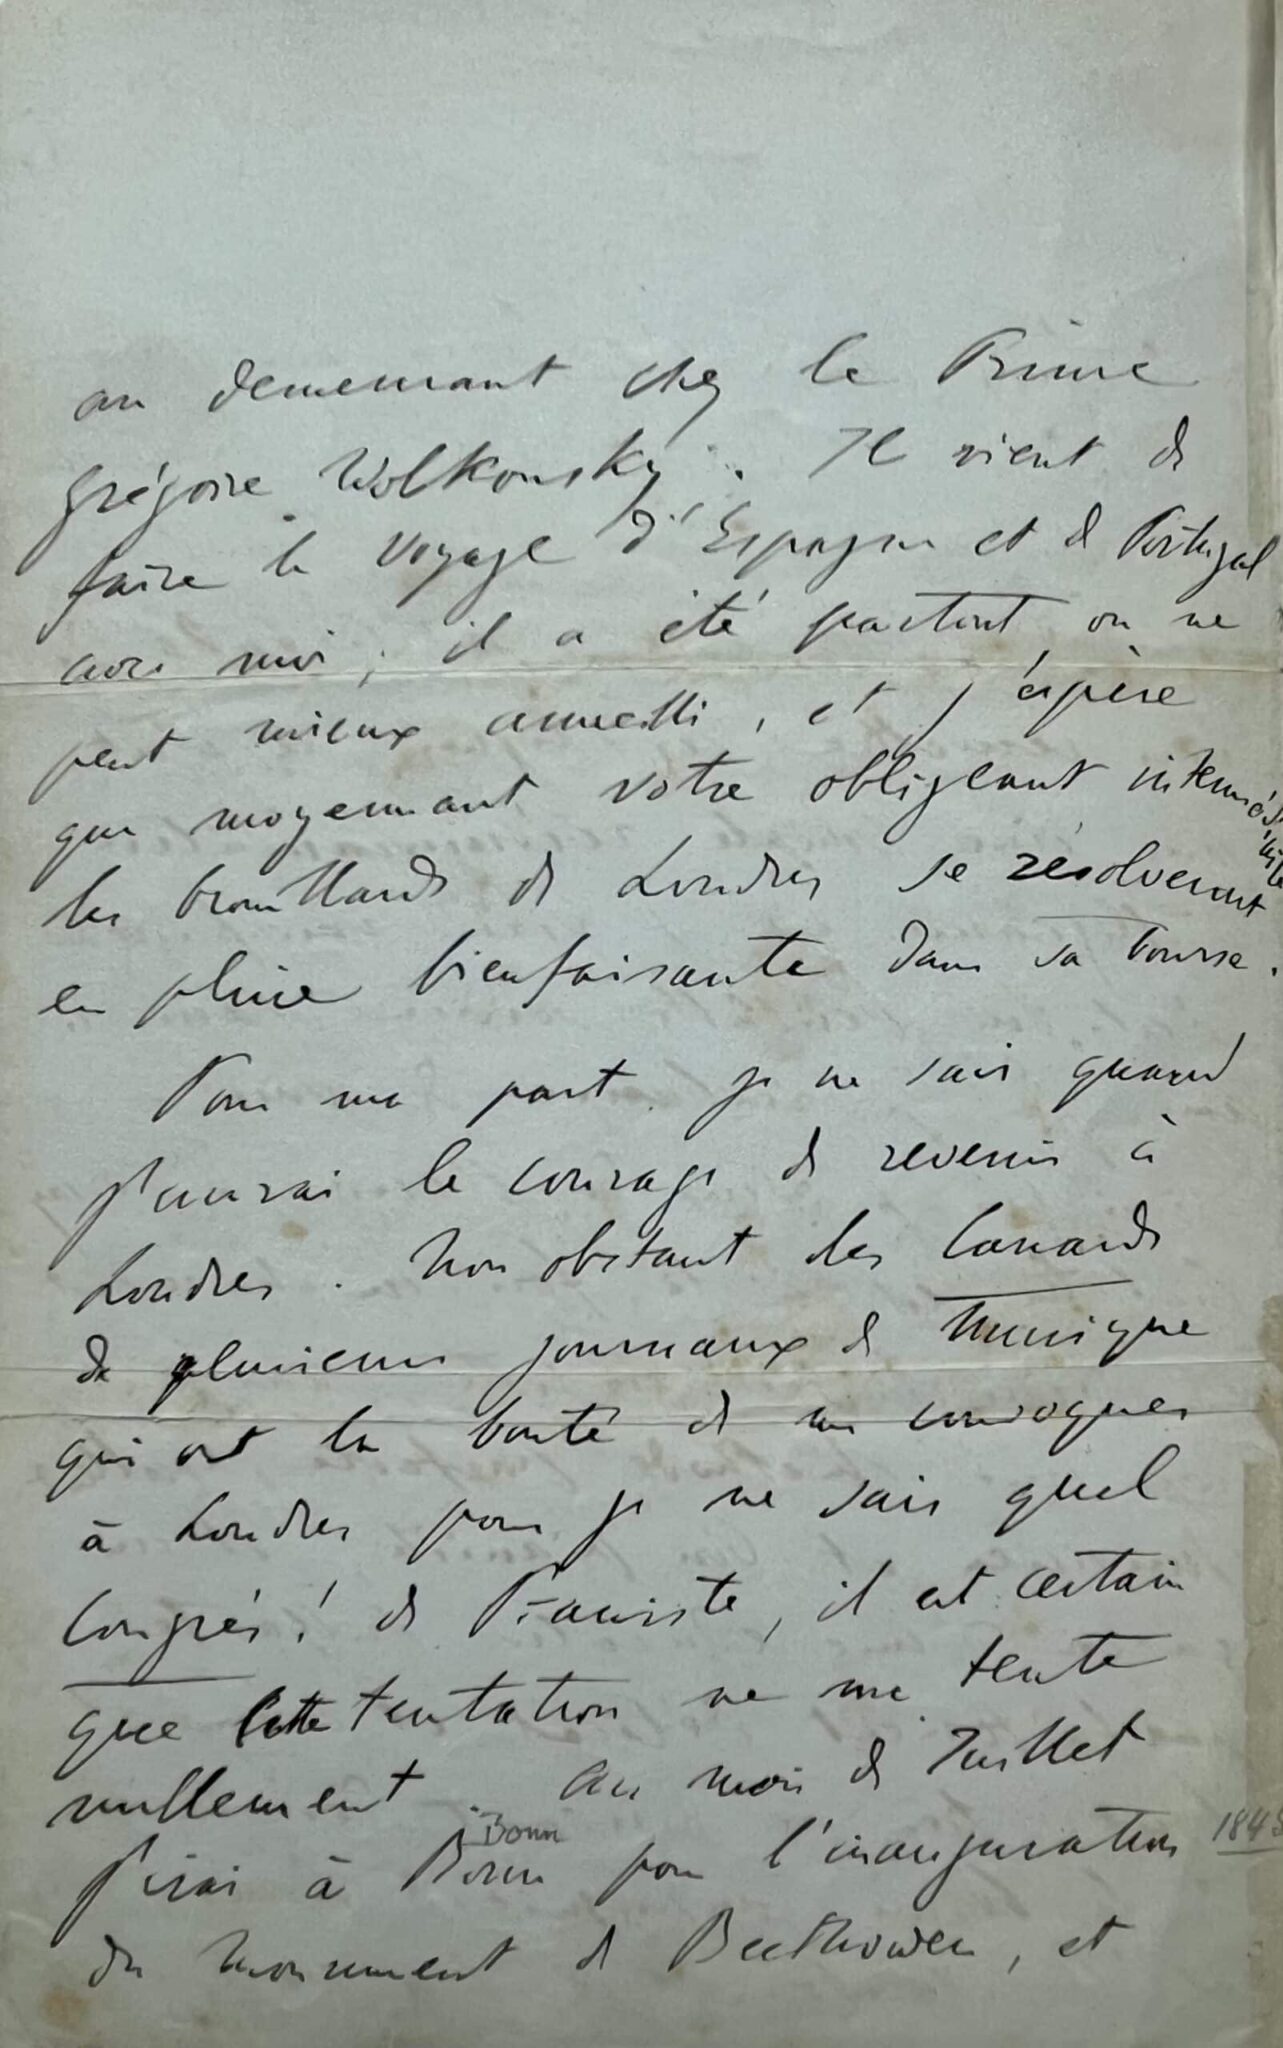 au demeurant chez le Prince
Grégoire Wolkonsky. Il vient de
faire le voyage d'Espagne et de Portugal
avec moi; il a été partout on ne
peut mieux accueilli, et j'espère
que moyennant votre obligeant intermédiaire
les brouillards de Londres se résolveront
en pluie bienfaisante dans sa bourse.
Pour ma part je ne sais quand
j'aurai le courage de revenir à
Londres. Non obstant les Canards
de plusieurs journaux de Musique
qui ont la bonté de me convoquer
à Londres pour je ne sais quel
Congrès! de Pianiste, il est certain
que cette tentation ne me tente
nullement. Au mois de Juillet
Bonn
j'irai à Bonn pour l'inauguration 1845
du Monument de Beethowen, et